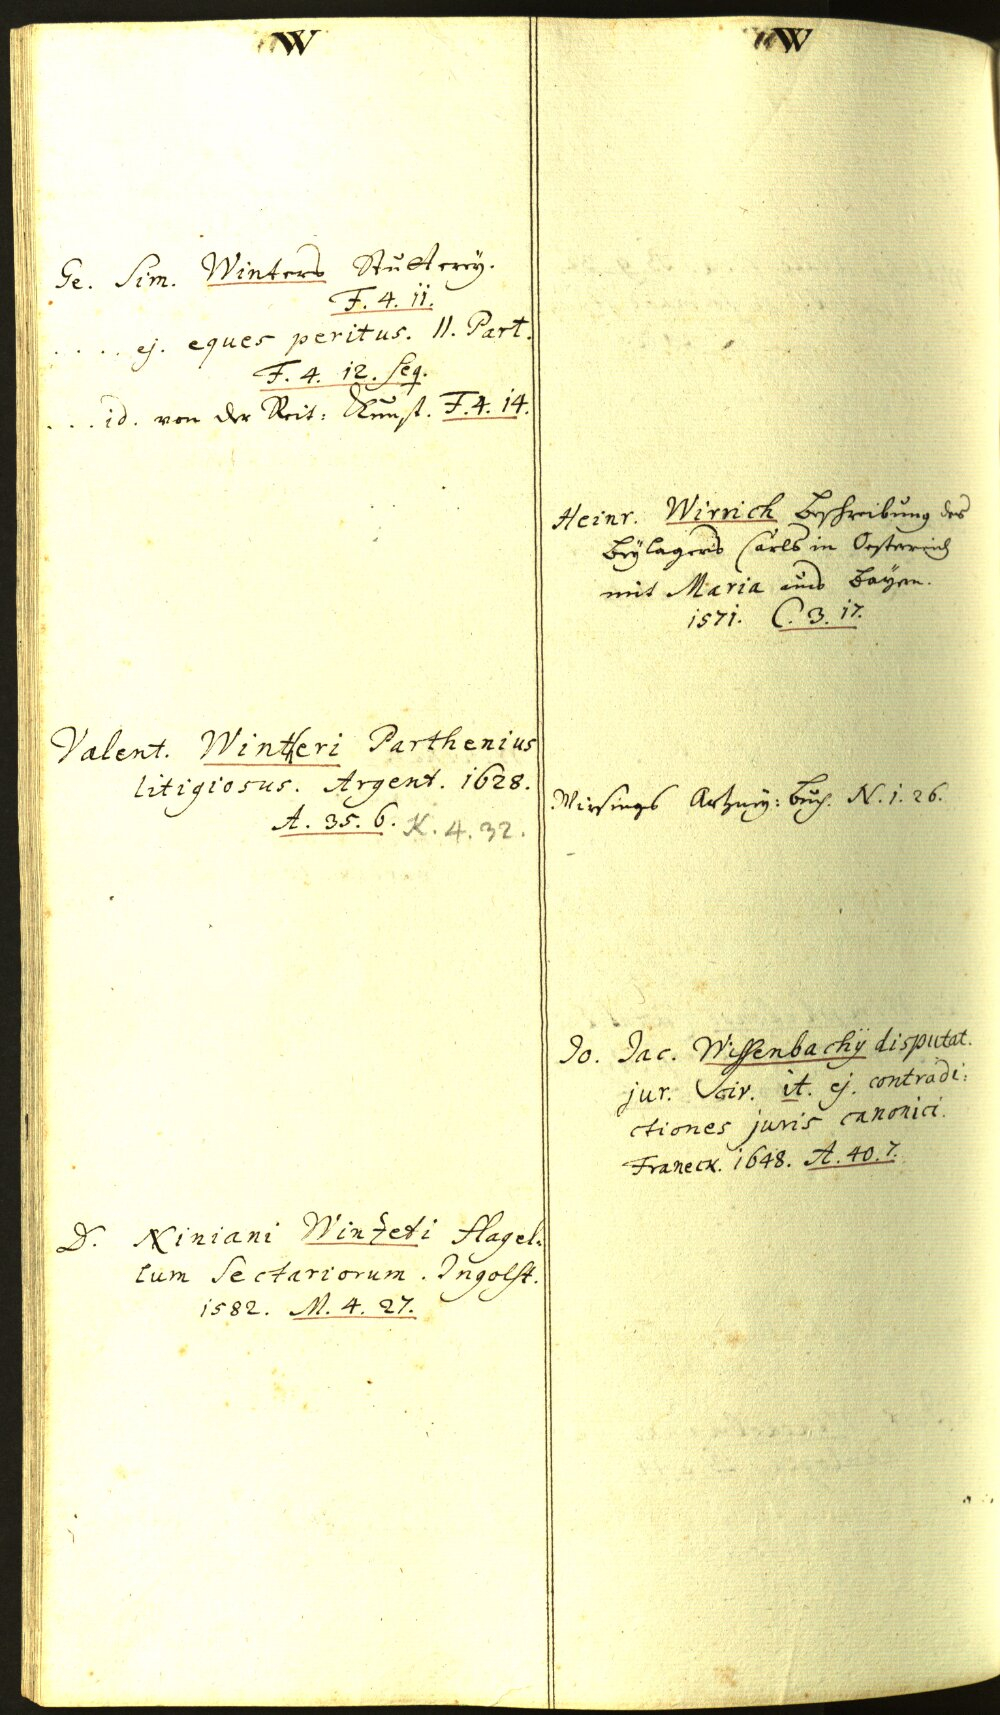 W
Ge. Sim. Winters Stutterey.
F. 4. 11.
. . . . ej. eques peritus. II. Part.
F. 4. 12. seq.
. . . id. von der Reit: Kunst. F. 4. 14.
Valent. Wintheri Parthenius
litigiosus. Argent. 1628.
A. 35. 6. K. 4. 32.
D. Niniani Winzeti flagel:
lum Sectariorum. Ingolst.
1582. M. 4. 27.
W
Heinr. Wirrich Beschreibung des
Beylagers Carls in Oesterreich
mit Maria aus Bayern.
1571. C. 3. 17.
Wirsings Artzney: Buch. N. 1. 26.
Jo. Jac. Wissenbachij disputat.
jur. Civ. it. ej. contradi:
ctiones juris canonici.
Franeck. 1648. A. 40. 7.